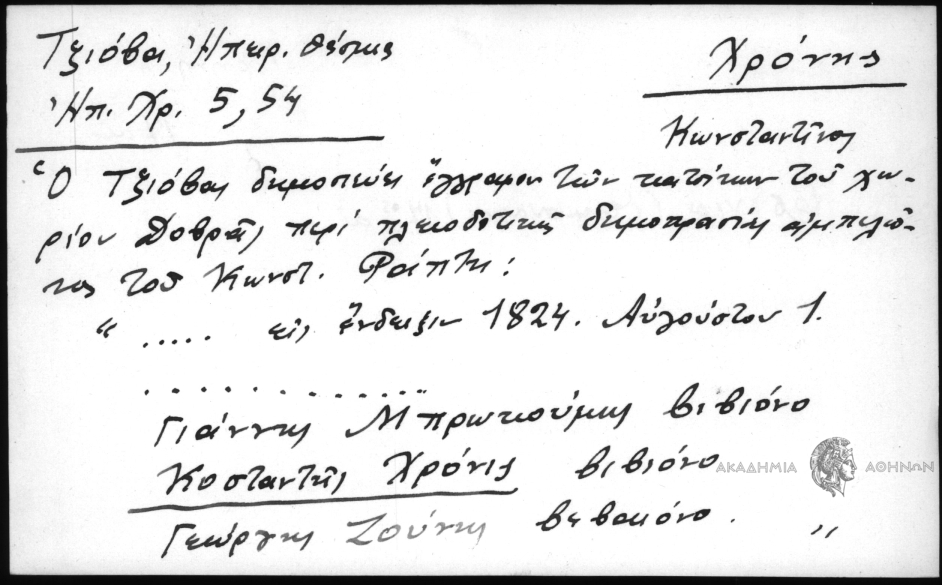 Τζιόβα, Ἠπειρ. θέσμες
Χρόνης
Ἠπ. Χρ. 5, 54
Κωνσταντῖνος
Ὁ Τζιόβας δημοσιεύει ἔγγραφον τῶν κατοίκων τοῦ χω-
ρίου Δοβρᾶς περί πλειοδοτικῆς δημοπρασίας ἀμπελῶ-
νος τοῦ Κωνστ. Ράπτη:
"..... εἰς ἔνδειξιν 1824. Αὐγούστου 1.
..............
Γιάννης Μπρωτιούμης βιβιόνο
Κοσταντῆς Χρόνις βιβιόνο
Γεώργης Ζούνης βεβαιόνο. "
ΑΚΑΔΗΜΙΑ ΑΘΗΝΩΝ